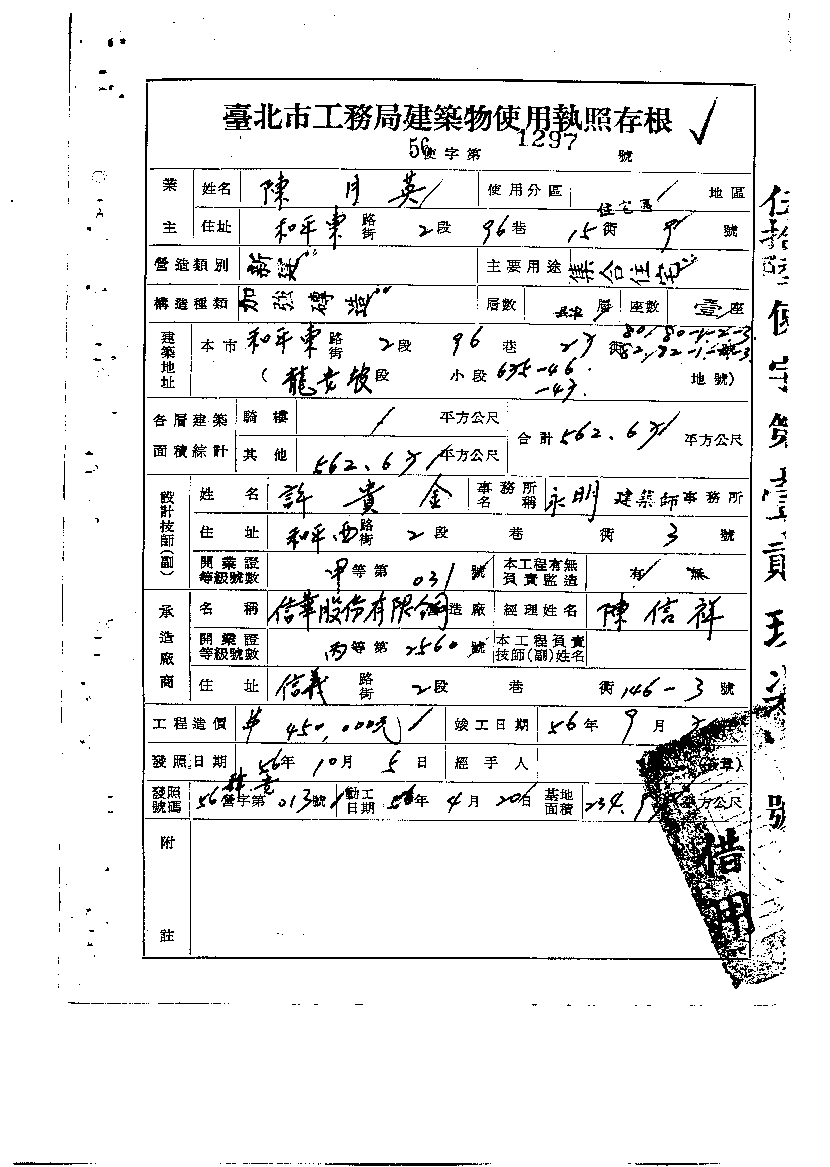 臺北市工務局建築物使用執照存根
56使字第 1297 號
業主 姓名 陳月英 使用分區 住宅區 地區
住址 和平東 路街 2段 96巷 15衖 9號
營造類別 新建 主要用途 集合住宅
構造種類 加強磚造 層數 層 座數 壹座
建築地址 本市 和平東 路街 2段 96巷 衖 80,80-1-2-3 82,82-1-2-3
(龍安坡段 小段 635-46 -47 地號)
各層建築面積綜計 騎樓 / 平方公尺 合計 562.6 平方公尺
其他 562.6 平方公尺
設計技師(副) 姓名 許貴金 事務所名稱 永明 建築師事務所
住址 和平西 路街 2段 巷 衖 3號
開業證等級號數 甲等第 031號 本工程有無負責監造 有 無
承造廠商 名稱 信華股份有限公司 造廠 經理姓名 陳信祥
開業證等級號數 丙等第 2560號 本工程負責技師(副)姓名
住址 信義 路街 2段 巷 衖 146-3號
工程造價 450,000元 竣工日期 56年 9月
發照日期 56年 10月 5日 經手人 (蓋章)
發照號碼 56營字第 013號 動工日期 56年 4月 20日 基地面積 234. 平方公尺
附註
借用
伍拾陸使字第壹貳玖柒號